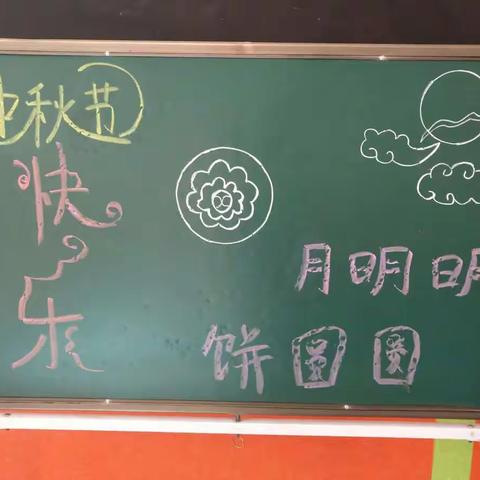 中秋节
快乐
月明明
饼圆圆